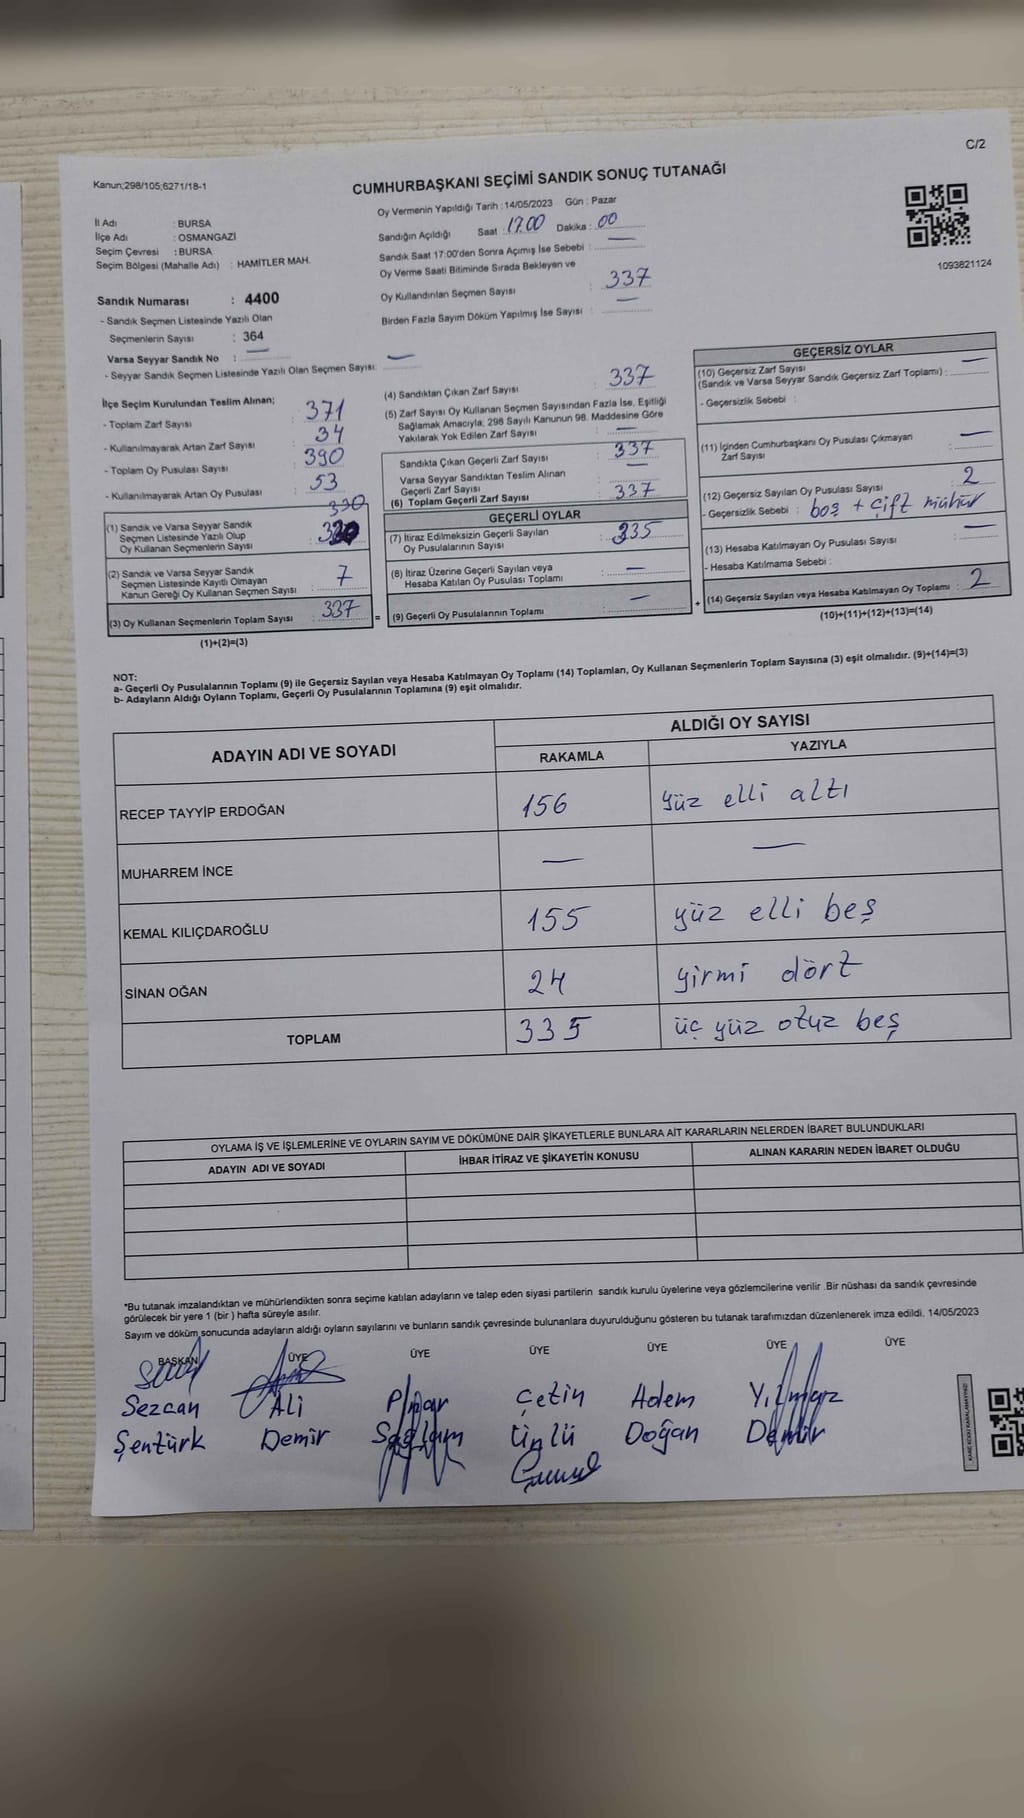 C/2
Kanun;298/105;6271/18-1
CUMHURBAŞKANI SEÇİMİ SANDIK SONUÇ TUTANAĞI
İl Adı : BURSA
İlçe Adı : OSMANGAZİ
Seçim Çevresi : BURSA
Seçim Bölgesi (Mahalle Adı) : HAMİTLER MAH.
Oy Vermenin Yapıldığı Tarih : 14/05/2023 Gün : Pazar
Sandığın Açıldığı Saat : 17.00 Dakika : 00
Sandık Saat 17:00'den Sonra Açımış İse Sebebi : —
Oy Verme Saati Bitiminde Sırada Bekleyen ve
Oy Kullandırılan Seçmen Sayısı : 337
Birden Fazla Sayım Döküm Yapılmış İse Sayısı : —
1093821124
Sandık Numarası : 4400
- Sandık Seçmen Listesinde Yazılı Olan
Seçmenlerin Sayısı : 364
Varsa Seyyar Sandık No : —
- Seyyar Sandık Seçmen Listesinde Yazılı Olan Seçmen Sayısı: —
İlçe Seçim Kurulundan Teslim Alınan;
- Toplam Zarf Sayısı : 371
- Kullanılmayarak Artan Zarf Sayısı : 34
- Toplam Oy Pusulası Sayısı : 390
- Kullanılmayarak Artan Oy Pusulası : 53
330
(1) Sandık ve Varsa Seyyar Sandık
Seçmen Listesinde Yazılı Olup
Oy Kullanan Seçmenlerin Sayısı
(2) Sandık ve Varsa Seyyar Sandık
Seçmen Listesinde Kayıtlı Olmayan
Kanun Gereği Oy Kullanan Seçmen Sayısı : 7
(3) Oy Kullanan Seçmenlerin Toplam Sayısı : 337
(1)+(2)=(3)
(4) Sandıktan Çıkan Zarf Sayısı : 337
(5) Zarf Sayısı Oy Kullanan Seçmen Sayısından Fazla İse, Eşitliği
Sağlamak Amacıyla, 298 Sayılı Kanunun 98. Maddesine Göre
Yakılarak Yok Edilen Zarf Sayısı : —
Sandıkta Çıkan Geçerli Zarf Sayısı : 337
Varsa Seyyar Sandıktan Teslim Alınan
Geçerli Zarf Sayısı : —
(6) Toplam Geçerli Zarf Sayısı : 337
GEÇERLİ OYLAR
(7) İtiraz Edilmeksizin Geçerli Sayılan
Oy Pusulalarının Sayısı : 335
(8) İtiraz Üzerine Geçerli Sayılan veya
Hesaba Katılan Oy Pusulası Toplamı : —
= (9) Geçerli Oy Pusulalarının Toplamı : — +
GEÇERSİZ OYLAR
(10) Geçersiz Zarf Sayısı
(Sandık ve Varsa Seyyar Sandık Geçersiz Zarf Toplamı) : —
- Geçersizlik Sebebi :
(11) İçinden Cumhurbaşkanı Oy Pusulası Çıkmayan
Zarf Sayısı : —
(12) Geçersiz Sayılan Oy Pusulası Sayısı : 2
- Geçersizlik Sebebi : boş + çift mühür
(13) Hesaba Katılmayan Oy Pusulası Sayısı : —
- Hesaba Katılmama Sebebi :
(14) Geçersiz Sayılan veya Hesaba Katılmayan Oy Toplamı : 2
(10)+(11)+(12)+(13)=(14)
NOT:
a- Geçerli Oy Pusulalarının Toplamı (9) ile Geçersiz Sayılan veya Hesaba Katılmayan Oy Toplamı (14) Toplamları, Oy Kullanan Seçmenlerin Toplam Sayısına (3) eşit olmalıdır. (9)+(14)=(3)
b- Adayların Aldığı Oyların Toplamı, Geçerli Oy Pusulalarının Toplamına (9) eşit olmalıdır.
ADAYIN ADI VE SOYADI ALDIĞI OY SAYISI
RAKAMLA YAZIYLA
RECEP TAYYİP ERDOĞAN 156 yüz elli altı
MUHARREM İNCE — —
KEMAL KILIÇDAROĞLU 155 yüz elli beş
SİNAN OĞAN 24 yirmi dört
TOPLAM 335 üç yüz otuz beş
OYLAMA İŞ VE İŞLEMLERİNE VE OYLARIN SAYIM VE DÖKÜMÜNE DAİR ŞİKAYETLERLE BUNLARA AİT KARARLARIN NELERDEN İBARET BULUNDUKLARI
ADAYIN ADI VE SOYADI İHBAR İTİRAZ VE ŞİKAYETİN KONUSU ALINAN KARARIN NEDEN İBARET OLDUĞU
*Bu tutanak imzalandıktan ve mühürlendikten sonra seçime katılan adayların ve talep eden siyasi partilerin sandık kurulu üyelerine veya gözlemcilerine verilir .Bir nüshası da sandık çevresinde
görülecek bir yere 1 (bir ) hafta süreyle asılır.
Sayım ve döküm sonucunda adayların aldığı oyların sayılarını ve bunların sandık çevresinde bulunanlara duyurulduğunu gösteren bu tutanak tarafımızdan düzenlenerek imza edildi. 14/05/2023
BAŞKAN ÜYE ÜYE ÜYE ÜYE ÜYE ÜYE
Sezcan Ali Pınar Çetin Adem Yılmaz
Şentürk Demir Sağlam Ünlü Doğan Demir